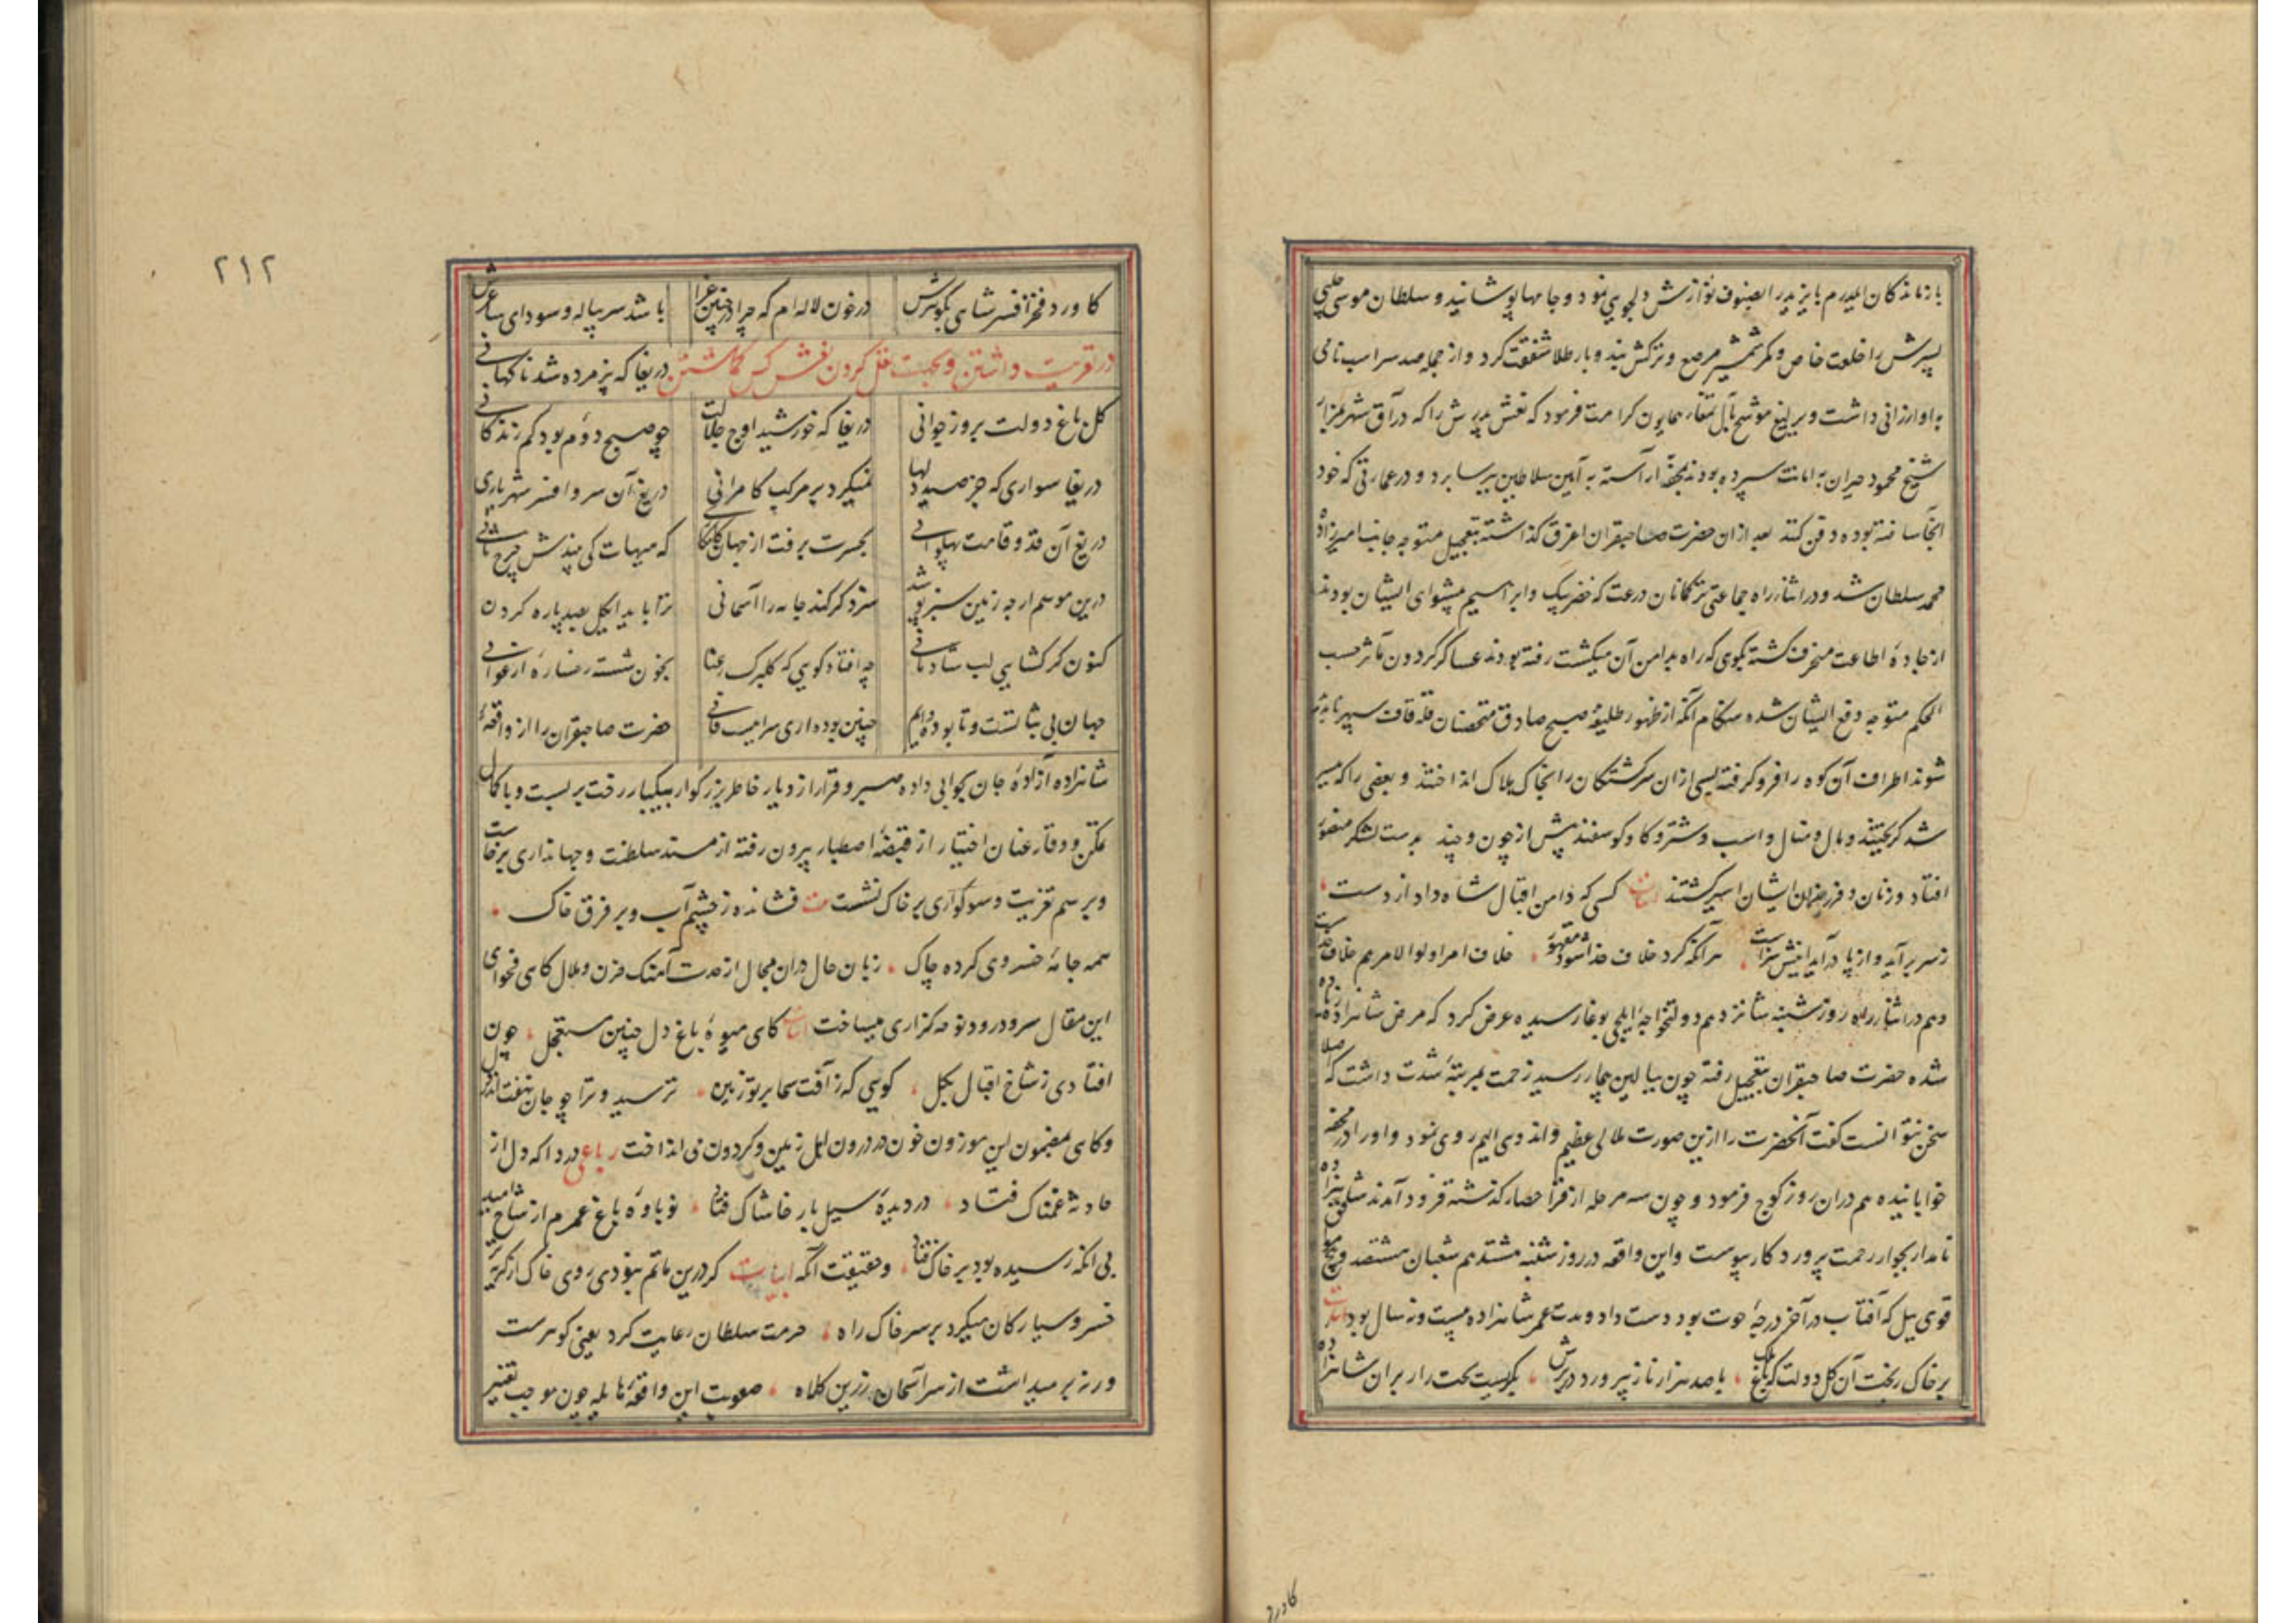 بازماندکان ایلدرم بایزید را بصنوف نوازش دلجویی نمود و جامها پوشانید و سلطان موسی چلبی
پسرش را خلعت خاص و کمر شمشیر مرصع و ترکش بند و بار طلا شفقت کرد و از جمله صد سر اسب نامی
باو ارزانی داشت و یرلیغ موشح بآل تمغاء همایون کرامت فرمود که نعش پدرش را که در آق شهر بمزار
شیخ محمود حیران به امانت سپرده بودند بمحفهٔ آراسته به آیین سلاطین ببرسا برد و در عمارتی که خود
آنجا ساخته بوده دفن کنند بعد ازان حضرت صاحبقران اغرق کذاشته بتعجیل متوجه جانب امیرزاده
محمد سلطان شد و در اثناء راه جماعتی ترکمانان درغت که خضر بیک و ابراهیم پیشوای ایشان بودند
از جادهٔ اطاعت منحرف کشته بکوهی که راه بدامن آن میکشت رفته بودند عساکر کردون مآثر حسب
الحکم متوجه دفع ایشان شده هنکام آنکه از ظهور طلیعهٔ صبح صادق متحصنان قلهٔ قاف سپهر
شوند اطراف آن کوه را فرو کرفته بسی ازان سرکشتکان را بخاک هلاک انداختند و بعضی را که میسر
شد کریختند و مال و منال و اسب و شتر و کاو و کوسفند بیش از چون و چند بدست لشکر منصور
افتاد و زنان و فرزندان ایشان اسیر کشتند ابیات کسی که دامن اقبال شاه داد از دست
ز سر برآید و از پا درآید اینش سزاست هر آنکه کرد خلاف خدا شود مقهور خلاف امر اولوا لامر هم خلاف خداست
و هم در اثناء راه روز شنبه شانزدهم دولتخواجهٔ ایلچی بوغا رسیده عرض کرد که مرض شاهزاده زیاده
شده حضرت صاحبقران بتعجیل رفته چون ببالین بیمار رسید زحمت بمرتبهٔ شدت داشت که اصلا
سخن نتوانست کفت آنحضرت را ازین صورت ملالی عظیم و اندوهی الیم روی نمود و او را در محفه
خوابانیده هم دران روز کوچ فرمود و چون سه مرحله از قرا حصار کذشته فرود آمدند شاهزاده
نامدار بجوار رحمت پروردکار پیوست و این واقعه در روز شنبه هشتدهم شعبان هشتصد و پنج
قوی ییل که آفتاب در آخر درجهٔ حوت بود دست داد و مدت عمر شاهزاده بیست و نه سال بود ابیات
بر خاک ریخت آن کل دولت که باغ ملک با صد هزار ناز بپرورد در برش بکریست تخت زار بران شاهزاده
کاورد
۲۱۲
کاورد فخر افسر شاهی بکوهرش در خون لاله ام که چرا در چنین عزا باشد سر پیاله و سودای ساغرش
در تعزیت داشتن و بجهت نقل کردن نعش کس کماشتن دریغا که پژمرده شد ناکهانی
کل باغ دولت بروز جوانی دریغا که خورشید اوج جلالت چو صبح دوم بود کم زندکانی
دریغا سواری که جز صید دلها نمیکرد بر مرکب کامرانی دریغ آن سر و افسر شهریاری
دریغ آن قد و قامت پهلوانی بحسرت برفت از جهان که هیهات کی بیندش چرخ ثانی
درین موسم ارچه زمین سبزپوشد سزد کر کند جامه را آسمانی ترا باید ای کل بصد پاره کردن
کنون کر کشایی لب شادمانی چه افتاد کویی که کلبرک رعنا بخون شسته رخسارهٔ ارغوانی
جهان بی ثباتست و تا بوده دایم چنین بوده آری سراییست فانی حضرت صاحبقران را از واقعهٔ
شاهزاده آزادهٔ جان بجوانی داده صبر و قرار از دیار خاطر بزرکوار بیکبار رخت بربست و با کمال
تمکن و وقار عنان اختیار از قبضهٔ اصطبار بیرون رفته از مسند سلطنت و جهانداری برخاست
و برسم تعزیت و سوکواری بر خاک نشست بیت فشانده ز چشم آب و بر فرق خاک
همه جامهٔ خسروی کرده چاک زبان حال دران مجال از مدت آهنک حزن و ملال کاهی فحوای
این مقال سرود رود نوحه کزاری میساخت ابیات کای میوهٔ باغ دل چنین مستعجل چون
افتادی ز شاخ اقبال بکل کویی که ز آفت سما بر تو زمین ترسید و ترا چو جان نهفت اندر دل
و کاهی بمضمون این موزون خون در درون اهل زمین و کردون می انداخت رباعی دردا که دل از
حادثه غمناک فتاد در دیدهٔ سیل بار خاشاک فتاد نوباوهٔ باغ عمرم از شاخ امید
بی آنکه رسیده بود بر خاک فتاد و حقیقت آنکه ابیات کر درین ماتم نبودی روی خاک از کریه تر
خسرو سیارکان میکرد بر سر خاک راه حرمت سلطان رعایت کرد یعنی کو هرست
ورنه بر میداشت از سر آسمان زرین کلاه صعوبت این واقعهٔ هایله چون موجب تغییر